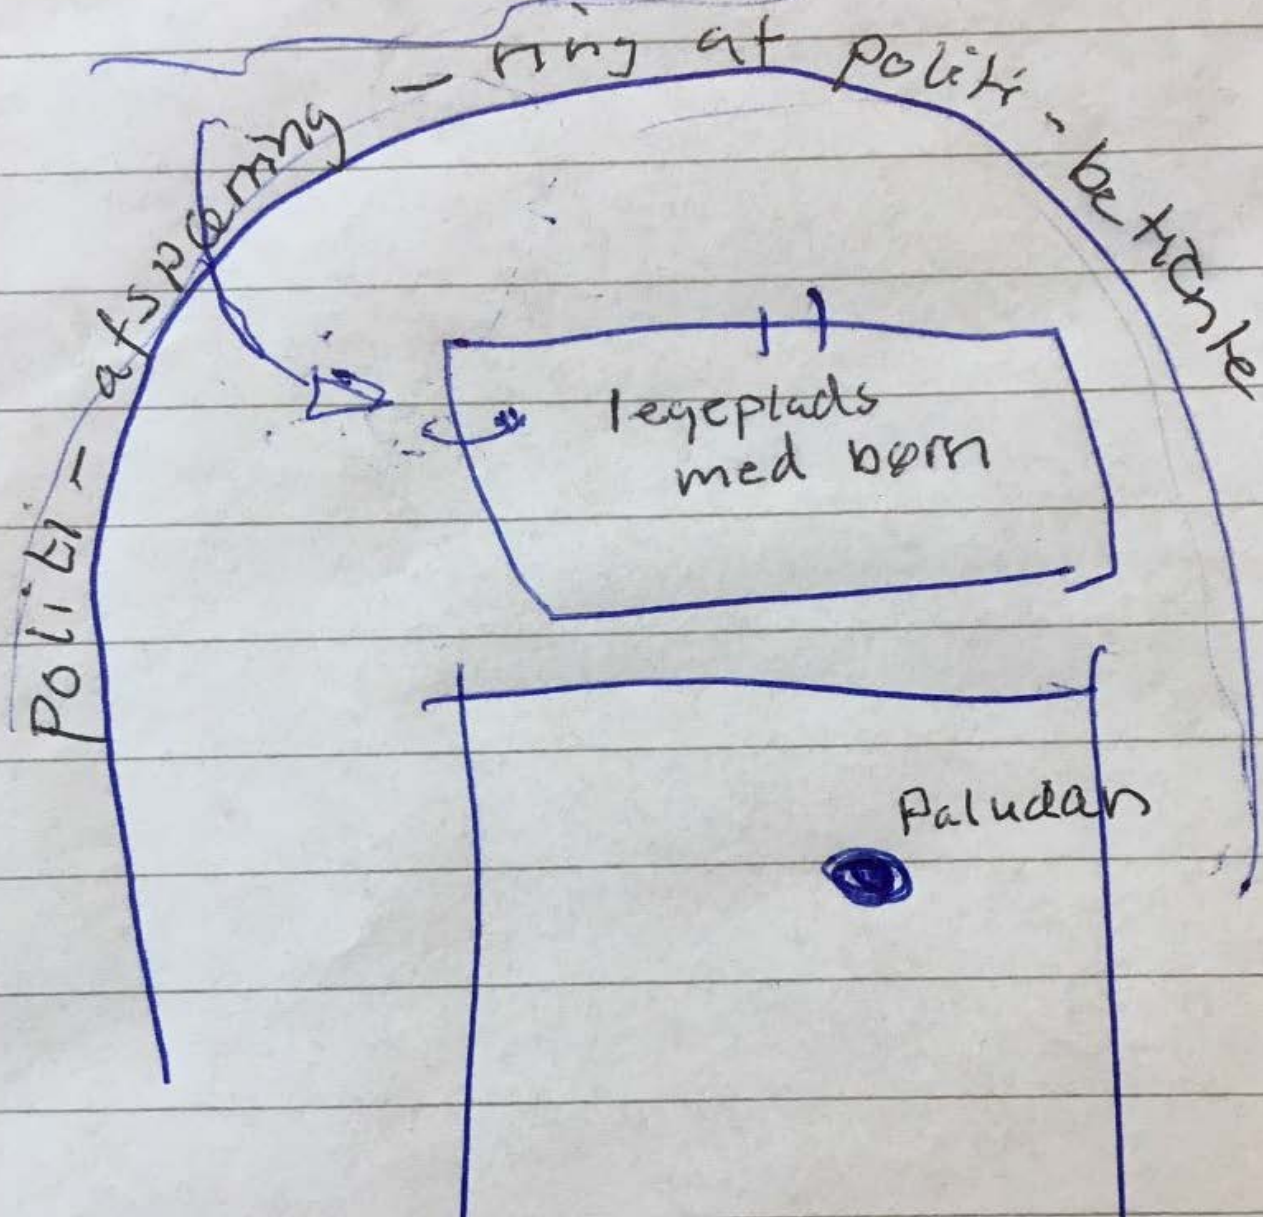 Politi-afspærring - ring af politi-betjente
legeplads
med børn
Paludan